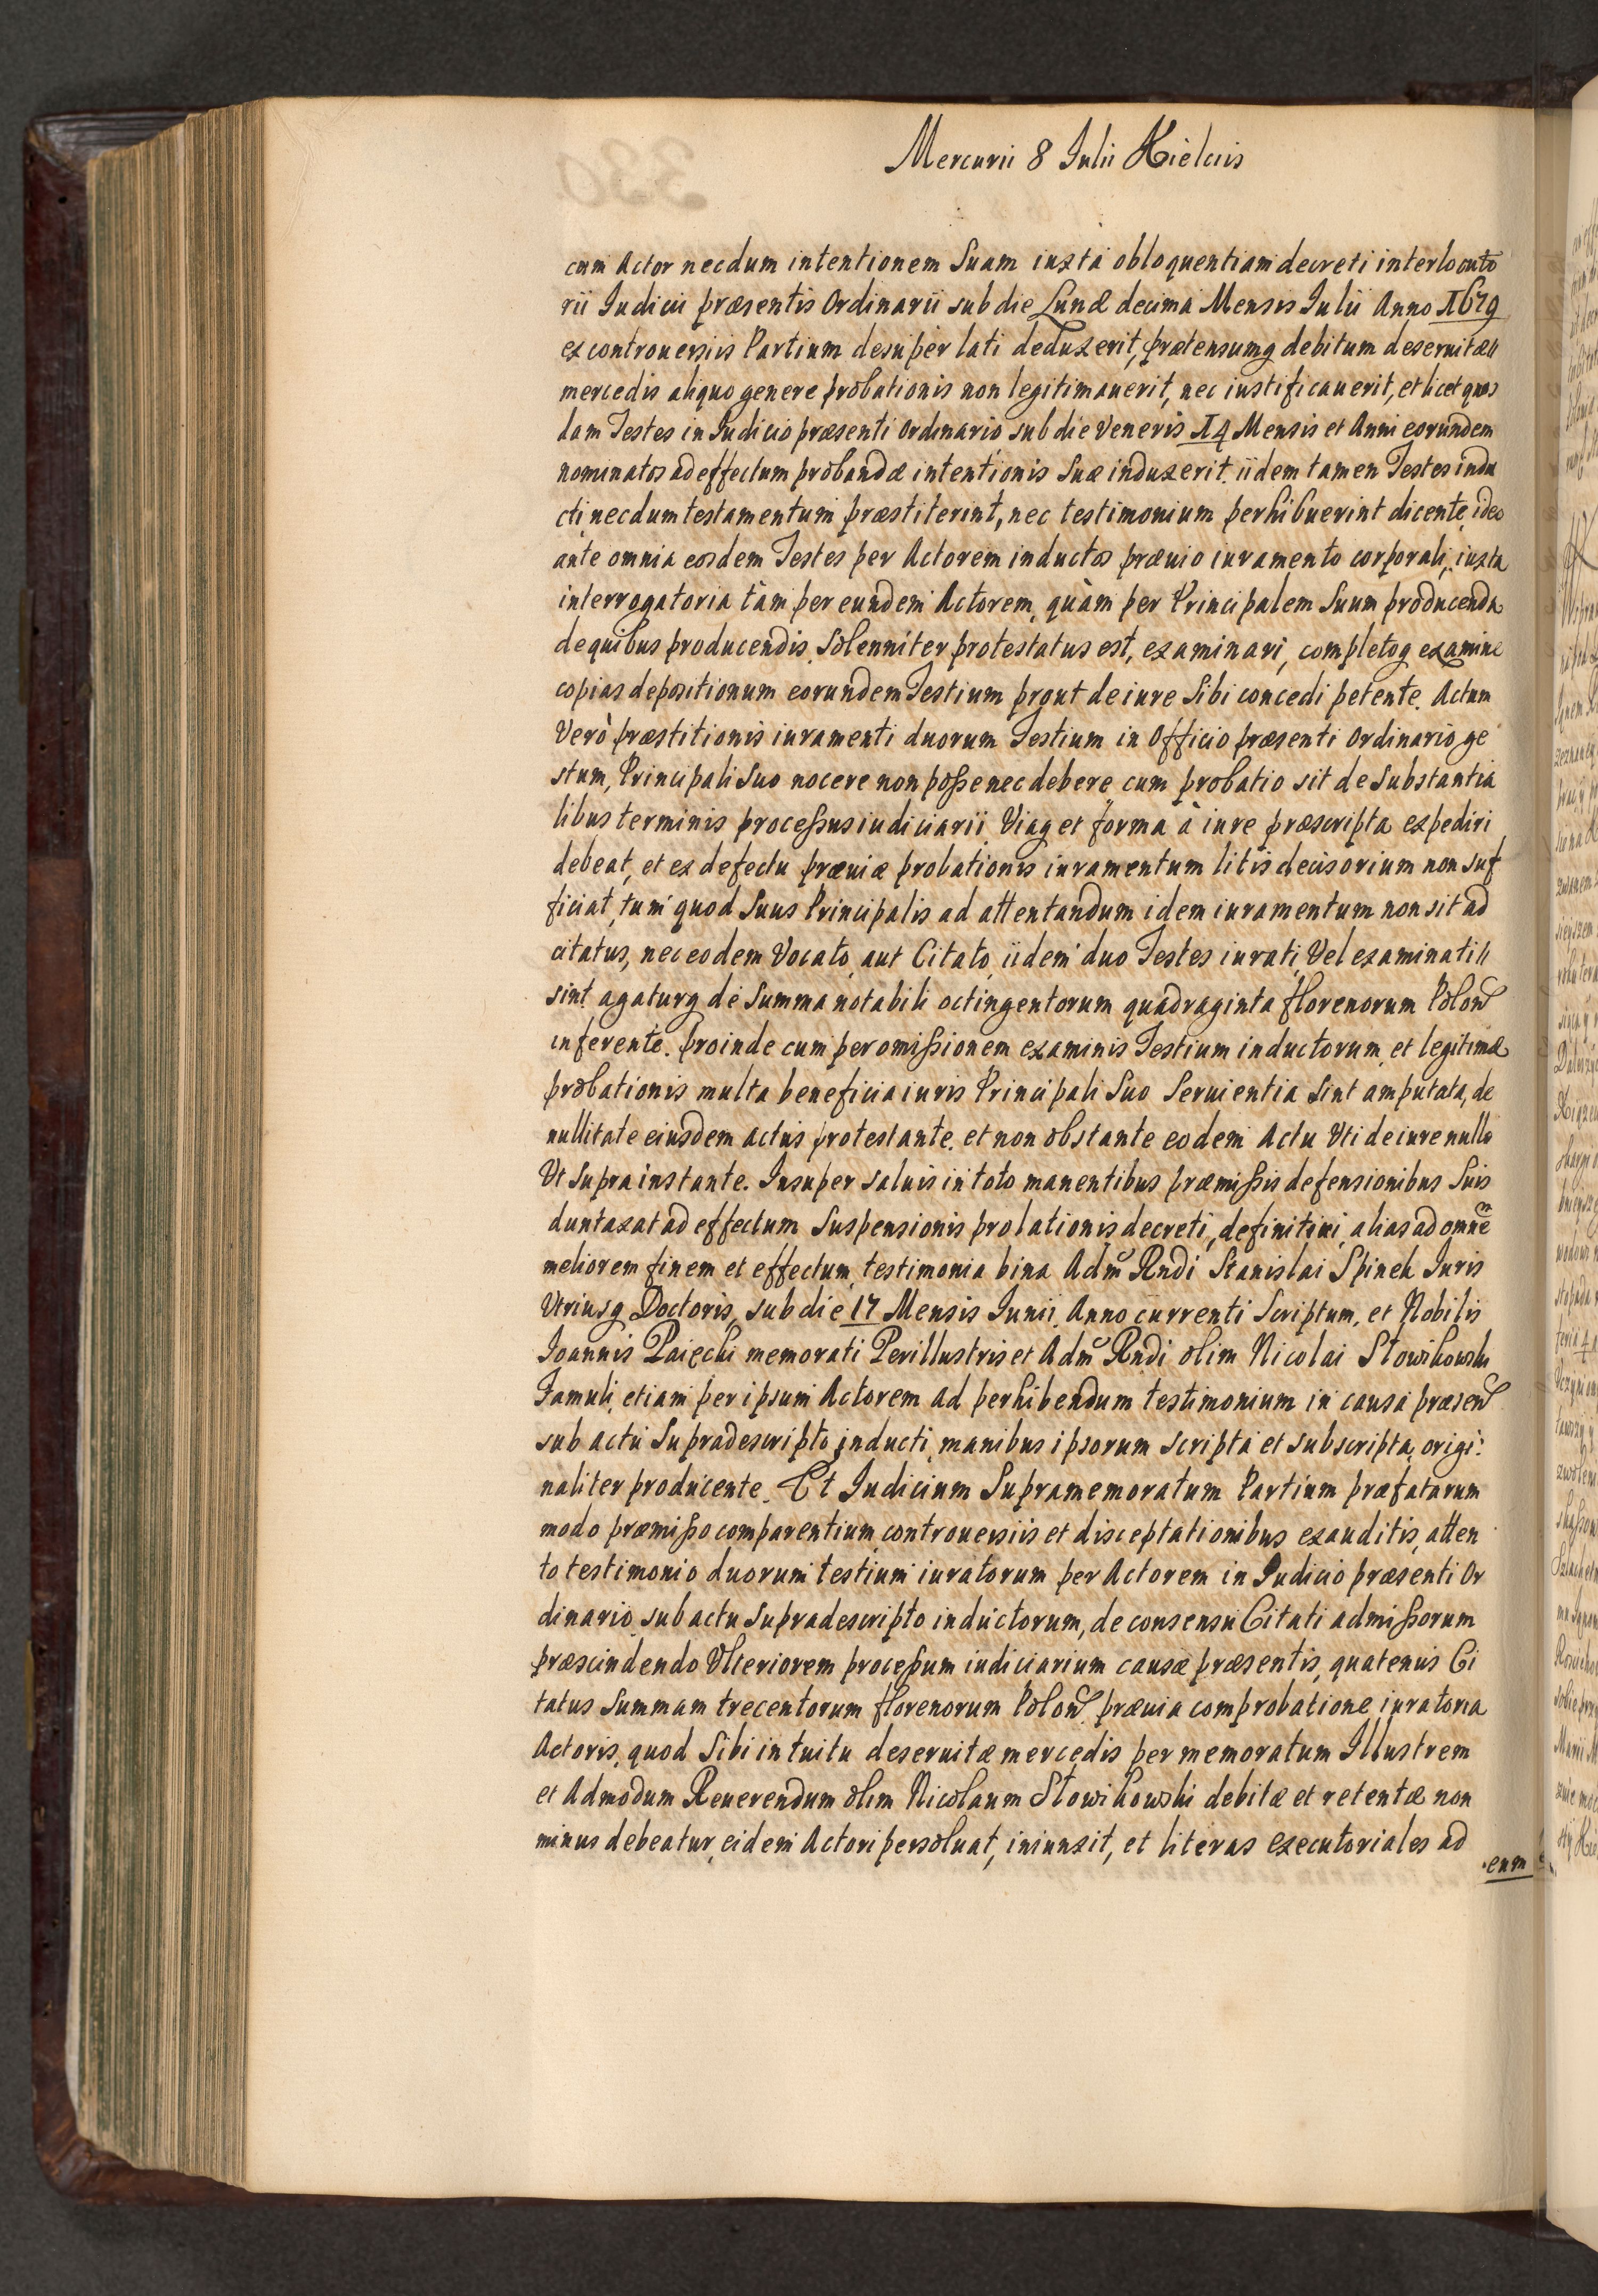 Mercurii 8 Iulii Kielciis
cum Actor necdum intentionem Suam iuxta obloquentiam decreti interlocuto
rii Iudicii præsentis Ordinarii sub die Lunæ decima Mensis Iulii Anno 1679
ex controuersiis Partium desuper lati deduxerit, prætensumq debitum deseruitæ
mercedis aliquo genere probationis non legitimauerit, nec iustificauerit, et licet quos
dam Testes in Iudicio præsenti Ordinario sub die Veneris 14 Mensis et Anni eorundem
nominatos ad effectum probandæ intentionis Suæ induxerit. iidem tamen Testes indu
cti necdum testamentum præstiterint, nec testimonium perhibuerint dicente, ideo
ante omnia eosdem Testes per Actorem inductos præuio iuramento corporali, iuxta
interrogatoria tàm per eundem Actorem, quàm per Principalem Suum producenda
de quibus producendis Solenniter protestatus est, examinari, completoq examine
copias depositionum eorundem Testium prout de iure Sibi concedi petente. Actum
Verò præstitionis iuramenti duorum Testium in Officio præsenti Ordinario ge
stum, Principali Suo nocere non posse nec debere, cum probatio sit de Substantia
libus terminis processus iudiciarii Viaq et forma à iure præscripta expediri
debeat, et ex defectu præuiæ probationis iuramentum litis decisorium non suf
ficiat, tum quod Suus Principalis ad attentandum idem iuramentum non sit ad
citatus, nec eodem Vocato, aut Citato, iidem duo Testes iurati, Vel examinati
sint, agaturq de Summa notabili octingentorum quadraginta florenorum Polon
inferente. proinde cum per omissionem examinis Testium inductorum, et legitimæ
probationis multa beneficia iuris Principali Suo Seruientia Sint amputata, de
nullitate eiusdem actus protestante. et non obstante eodem Actu Uti de iure nullo
Ut Supra instante. Insuper saluis in toto manentibus præmissis defensionibus Suis
duntaxat ad effectum Suspensionis prolationis decreti, definitiui, alias ad omnem
meliorem finem et effectum, testimonia bina Adm Rndi Stanislai Spinek Iuris
Utriusq Doctoris, sub die 17 Mensis Iunii, Anno currenti Scriptum, et Nobilis
Ioannis Paięcki memorati Perillustris et Adm Rndi olim Nicolai Słowikowski
Famuli, etiam per ipsum Actorem ad perhibendum testimonium in causa præsen
sub actu Supradescripto inducti, manibus ipsorum scripta et subscripta, origi:
naliter producente. Et Iudicium Supramemoratum Partium præfatarum
modo præmisso comparentium controuersiis et disceptationibus exauditis, atten
to testimonio duorum testium iuratorum per Actorem in Iudicio præsenti Or
dinario, sub actu Supradescripto inductorum, de consensu Citati admissorum
præscindendo Ulteriorem processum iudiciarium causæ præsentis, quatenus Ci
tatus Summam trecentorum florenorum Polon præuia comprobatione iuratoria
Actoris, quod Sibi intuitu deseruitæ mercedis per memoratum Illustrem
et Admodum Reuerendum olim Nicolaum Słowikowski debitæ et retentæ non
minus debeatur, eidem Actori persoluat, iniunxit, et literas executoriales ad
eum